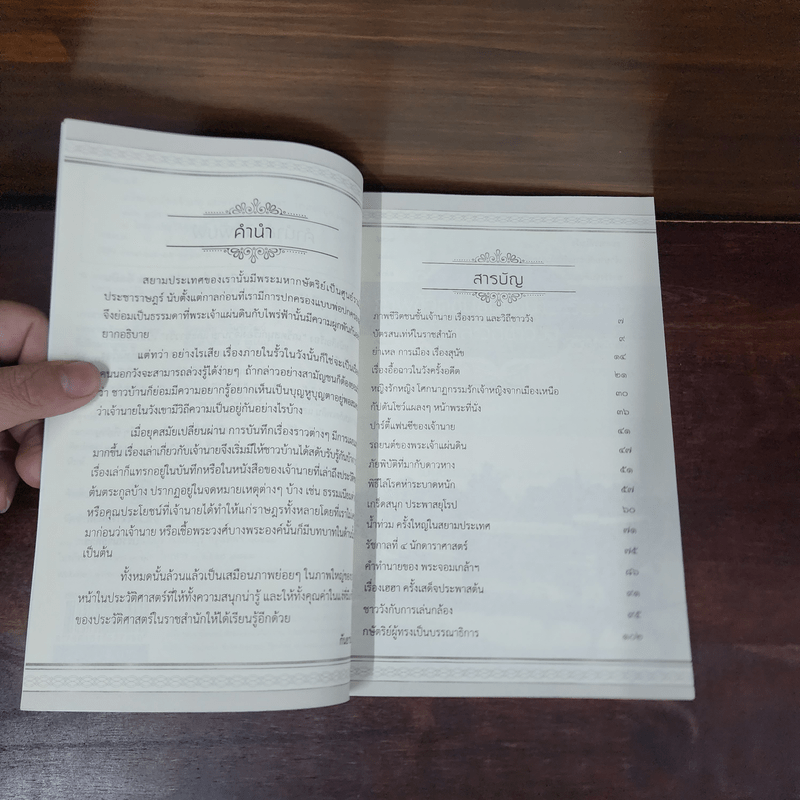 คำนำ
สยามประเทศของเรานั้นมีพระมหากษัตริย์เป็นศูนย์
ประชาราษฎร์ นับตั้งแต่กาลก่อนที่เรามีการปกครองแบบพ่อปกครอง
จึงย่อมเป็นธรรมดาที่พระเจ้าแผ่นดินกับไพร่ฟ้านั้นมีความผูกพันกัน
ยากอธิบาย
แต่ทว่า อย่างไรเสีย เรื่องภายในรั้วในวังนั้นก็ใช่จะเป็น
คนนอกวังจะสามารถล่วงรู้ได้ง่ายๆ ถ้ากล่าวอย่างสามัญชนก็ต้อง
ว่า ชาวบ้านก็ย่อมมีความอยากรู้อยากเห็นเป็นบุญหูบุญตาอยู่พอ
ว่าเจ้านายในวังเขามีวิถีความเป็นอยู่กันอย่างไรบ้าง
เมื่อยุคสมัยเปลี่ยนผ่าน การบันทึกเรื่องราวต่างๆ มีการ
มากขึ้น เรื่องเล่าเกี่ยวกับเจ้านายจึงเริ่มมีให้ชาวบ้านได้สดับรับรู้กัน
เรื่องเล่าก็แทรกอยู่ในบันทึกหรือในหนังสือของเจ้านายที่เล่าถึงประวัติ
ต้นตระกูลบ้าง ปรากฏอยู่ในจดหมายเหตุต่างๆ บ้าง เช่น ธรรมเนียม
หรือคุณประโยชน์ที่เจ้านายได้ทำให้แก่ราษฎรทั้งหลายโดยที่เรา
มาก่อนว่าเจ้านาย หรือเชื้อพระวงศ์บางพระองค์นั้นก็มีบทบาทในด้าน
เป็นต้น
ทั้งหมดนั้นล้วนแล้วเป็นเสมือนภาพย่อยๆ ในภาพใหญ่ของ
หน้าในประวัติศาสตร์ที่ให้ทั้งความสนุกน่ารู้ และให้ทั้งคุณค่าในแง่
ของประวัติศาสตร์ในราชสำนักให้ได้เรียนรู้อีกด้วย
สารบัญ
ภาพชีวิตชนชั้นเจ้านาย เรื่องราว และวิถีชาววัง ๗
บัตรสนเท่ห์ในราชสำนัก ๙
ย่าเหล การเมือง เรื่องสุนัข ๑๔
เรื่องอื้อฉาวในวังครั้งอดีต ๒๑
หญิงรักหญิง โศกนาฏกรรมรักเจ้าหญิงจากเมืองเหนือ ๓๐
กัปตันโชว์แผลงๆ หน้าพระที่นั่ง ๓๖
ปาร์ตี้แฟนซีของเจ้านาย ๔๑
รถยนต์ของพระเจ้าแผ่นดิน ๔๗
ภัยพิบัติที่มากับดาวหาง ๕๑
พิธีไล่โรคห่าระบาดหนัก ๕๗
เกร็ดสนุก ประพาสยุโรป ๖๐
น้ำท่วม ครั้งใหญ่ในสยามประเทศ ๗๑
รัชกาลที่ ๔ นักดาราศาสตร์ ๗๕
คำทำนายของ พระจอมเกล้าฯ ๘๖
เรื่องเฮฮา ครั้งเสด็จประพาสต้น ๙๑
ชาววังกับการเล่นกล้อง ๙๕
กษัตริย์ผู้ทรงเป็นบรรณาธิการ ๑๐๒